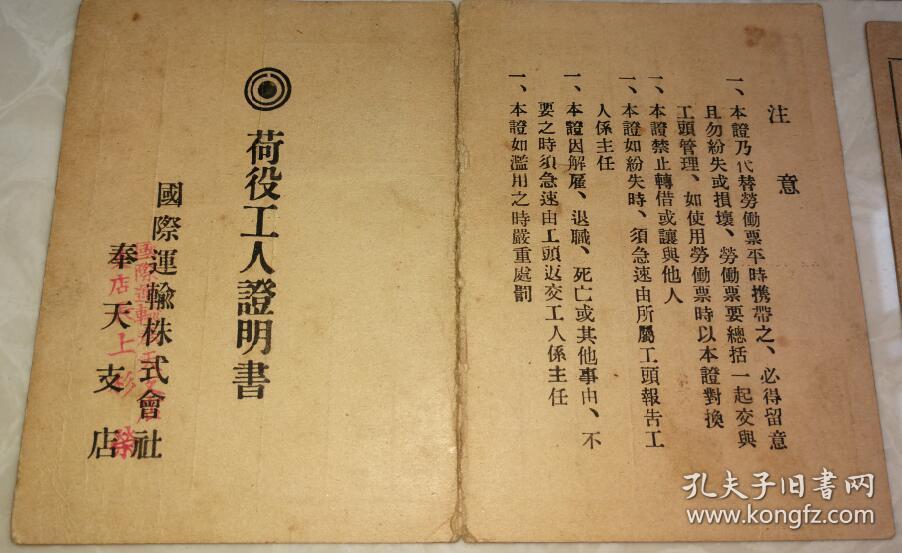 注意
一、本證乃代替勞働票平時携帶之、必得留意
且勿紛失或損壞、勞働票要總括一起交與
工頭管理、如使用勞働票時以本證對換
一、本證禁止轉借或讓與他人
一、本證如紛失時、須急速由所屬工頭報吿工
人係主任
一、本證因解雇、退職、死亡或其他事由、不
要之時須急速由工頭返交工人係主任
一、本證如濫用之時嚴重處罰
荷役工人證明書
國際運輸株式會社
奉天支店
孔夫子旧书网
www.kongfz.com